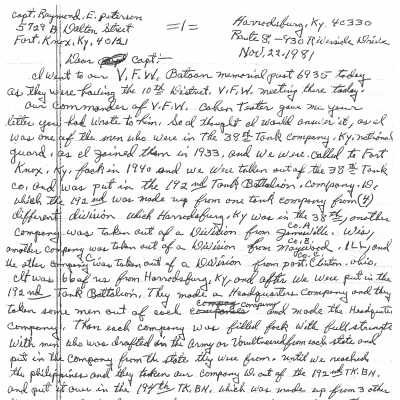 Capt, Raymond, E. Peterson =1= Harrodsburg, Ky. 40330
5729 B Dalton Street Route 8, -930 Riverside Drive
Fort, Knox, Ky, 40121 Nov, 22, 1981
Dear Capt;-
I went to our V.F.W. Bataan memorial post 6935 today
as they were having the 10th District. V.F.W. meeting there today.
our commander of V.F.W. Cohen Teater gave me your
letter you had wrote to him. So I thought I would answer it, as I
was one of the men who were in the 38th Tank company. Ky, national
guard, as I joined them in 1933, and we were called to Fort
Knox, Ky, back in 1940 and we were taken out of the 38th Tank
co, and was put in the 192nd Tank Battalion, Company, D,
which the 192nd was made up from one tank company from (4)
different division which Harrodsburg, Ky was in the 38th, another
Co. A
company was taken out of a Division from Jannsville. Wis,
Co. B
another company was taken out of a Division from Maywood, ILL, and
Co. C
the other company was taken out of a Division from port Clinton. Ohio.
It was 66 of us from Harrodsburg, Ky, and after we were put in the
192nd Tank Battalion, They made a Headquarters company and they
company
taken some men out of each and made the Headquters
company. Then each company was filled back with full strength
with men who was drafted in the army or Voultneered from each state and
put in the company from the state they were from. until we reached
the philippines and they taken our company D. out of the 192nd TK. BN.
and put it over in the 194th TK. BN, which was made up from 3 other